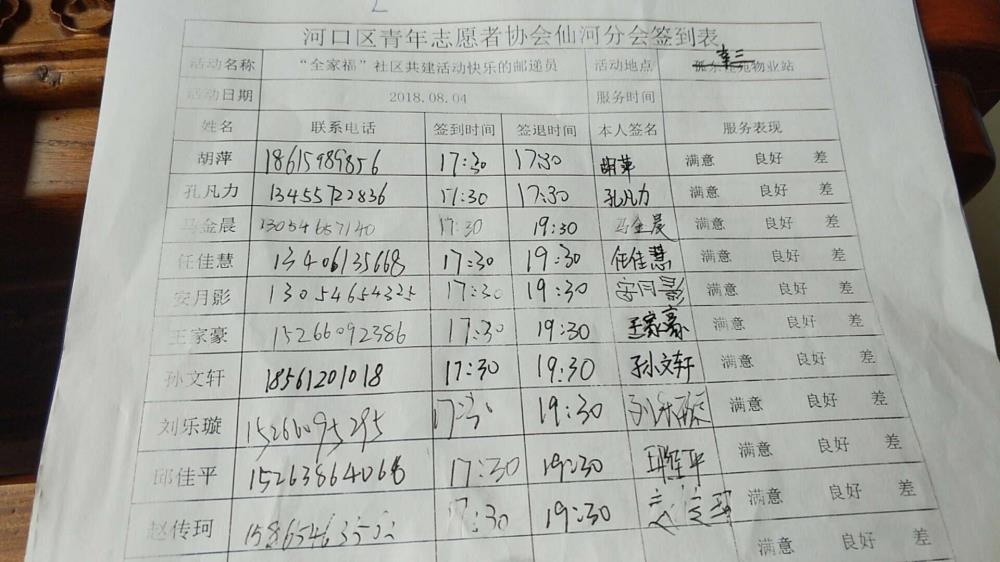 河口区青年志愿者协会仙河分会签到表
活动名称 “全家福”社区共建活动快乐的邮递员 活动地点 物业站
活动日期 2018.08.04 服务时间
姓名 联系电话 签到时间 签退时间 本人签名 服务表现
胡萍 18615989856 17:30 17:30 胡萍 满意 良好 差
孔凡力 13455722836 17:30 17:30 孔凡力 满意 良好 差
马金晨 13054657140 17:30 19:30 马金晨 满意 良好 差
任佳慧 13406135668 17:30 19:30 任佳慧 满意 良好 差
安月影 13054654325 17:30 19:30 安月影 满意 良好 差
王家豪 15266092386 17:30 19:30 王家豪 满意 良好 差
孙文轩 18561201018 17:30 19:30 孙文轩 满意 良好 差
刘乐璇 15266095295 17:30 19:30 刘乐璇 满意 良好 差
邱佳平 15263864068 17:30 19:30 邱佳平 满意 良好 差
赵传珂 17:30 19:30 满意 良好 差
满意 良好 差